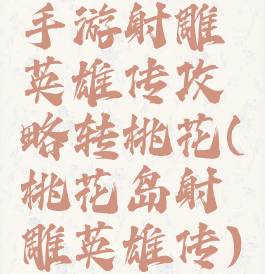 手游射雕
英雄传攻
略转桃花(
桃花岛射
雕英雄传)